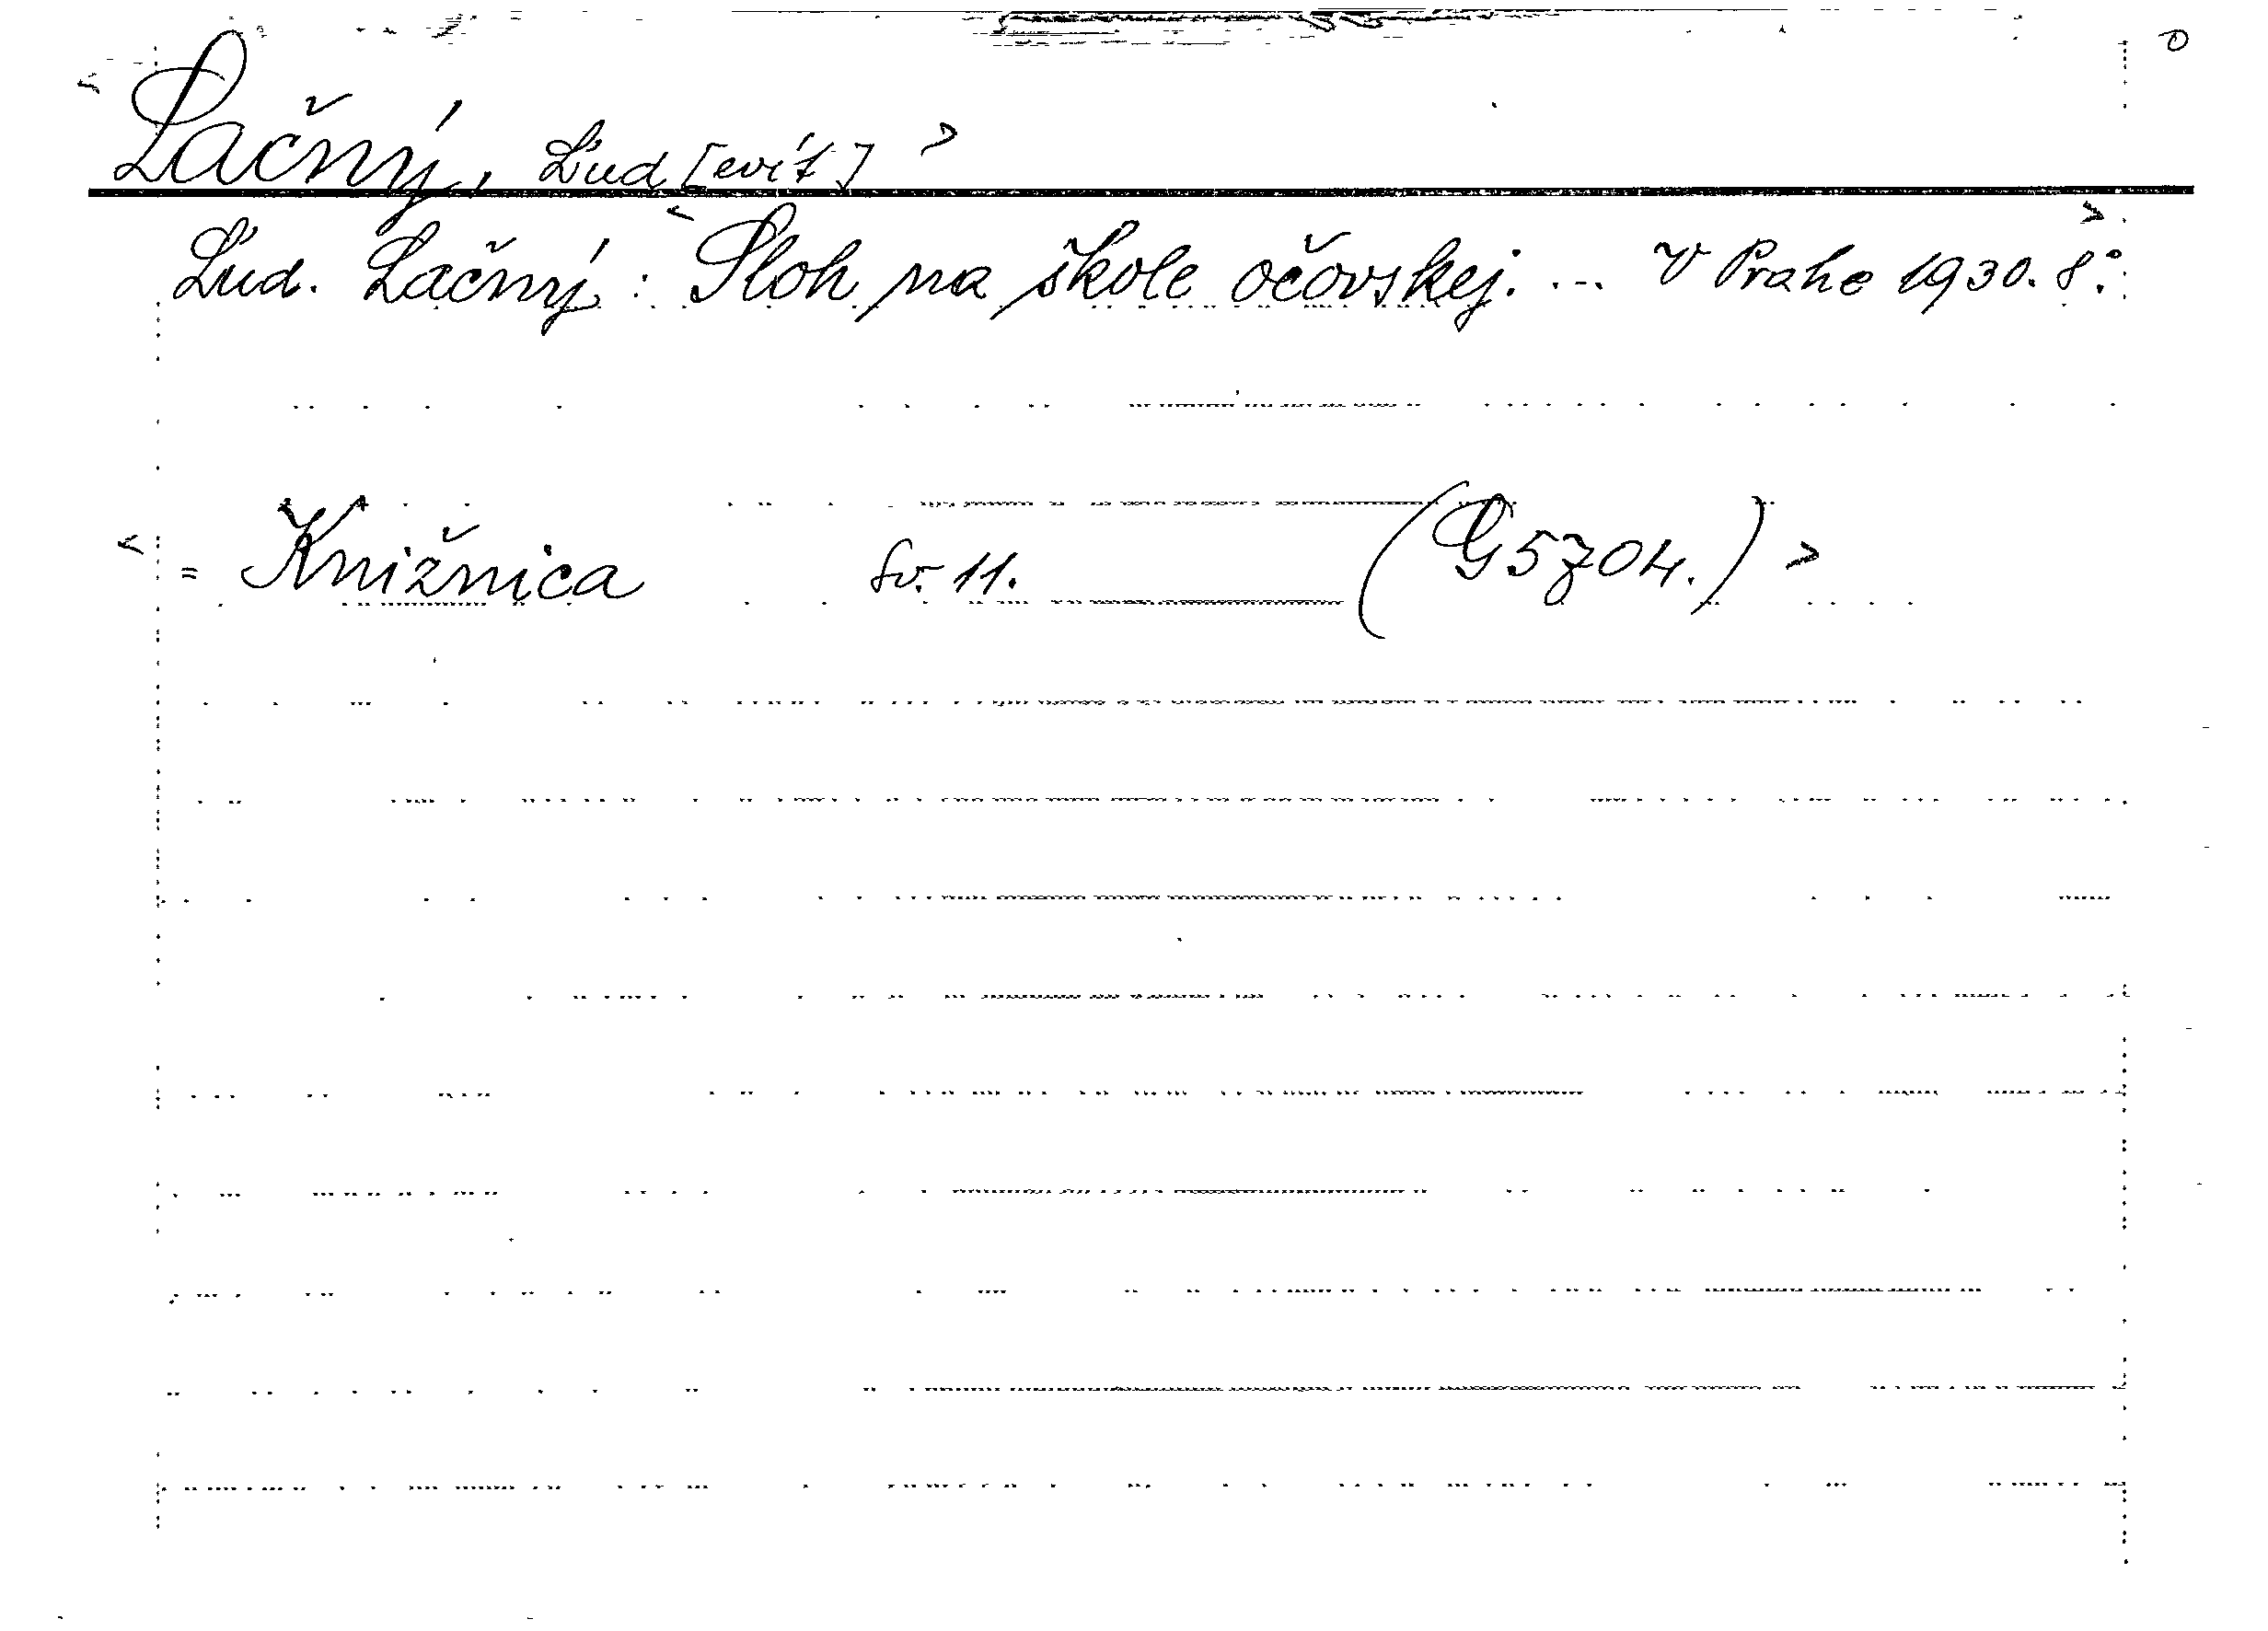 <Lačný, Ľud[evít]>
Ľud. Lačný: <Sloh na škole očovskej. ... V Prahe 1930. 8°.>
<= Knižnica Sv. 11. (G 5704.)>